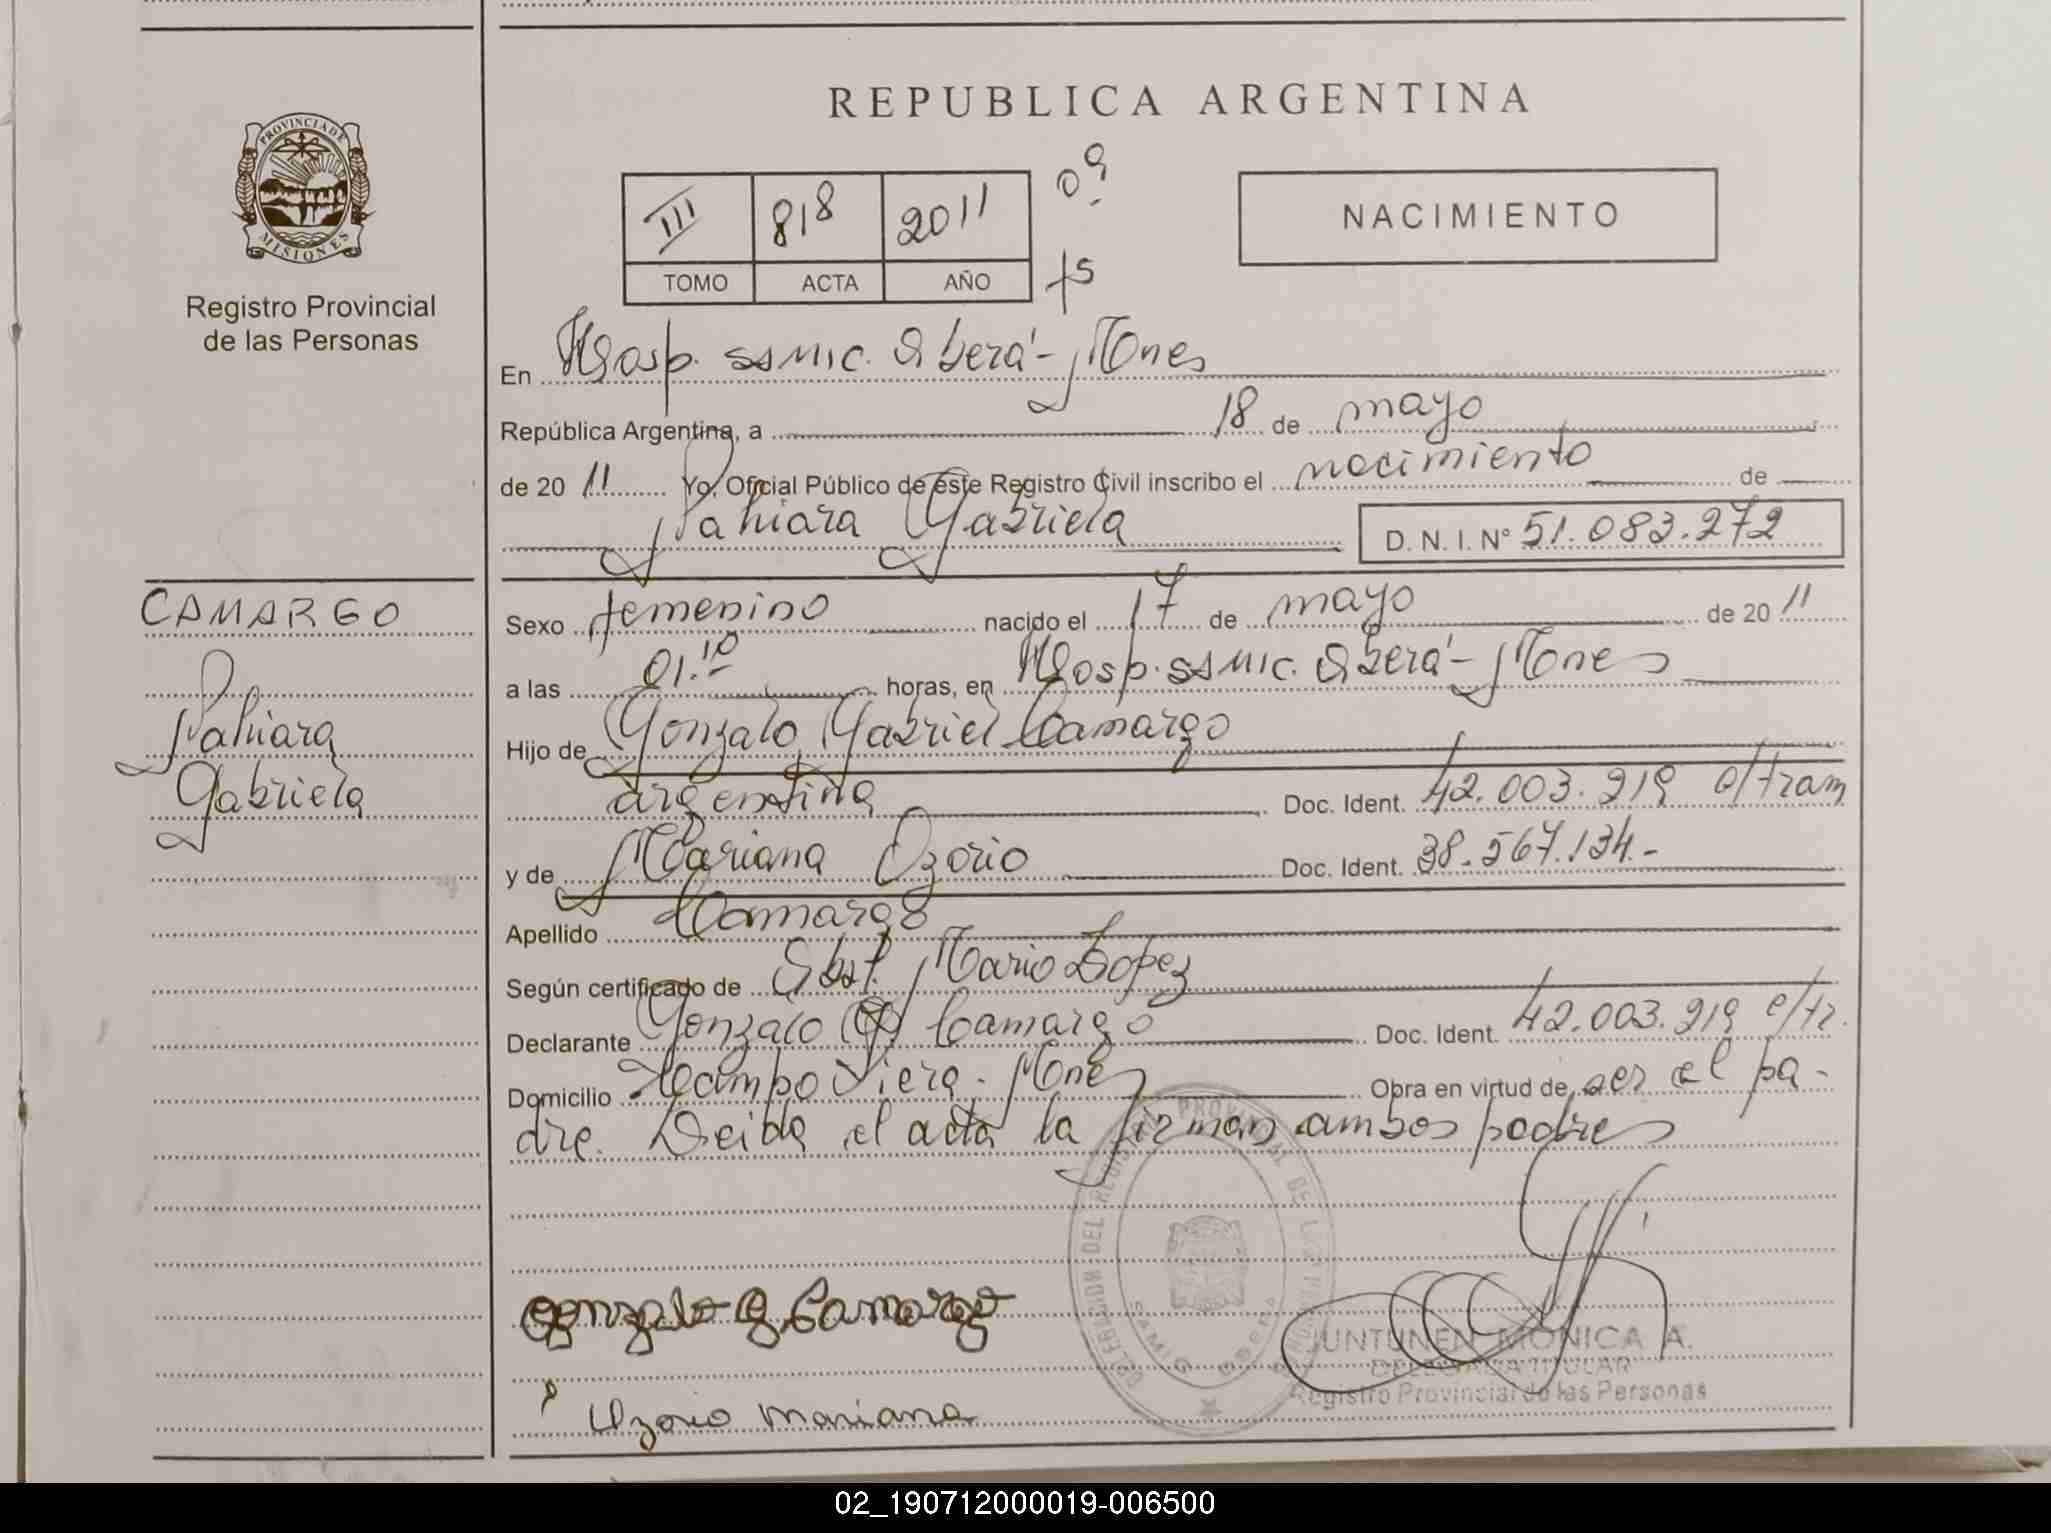 REPUBLICA ARGENTINA
PROVINCIA DE
MISIONES
Registro Provincial
de las Personas
III 818 2011
TOMO ACTA AÑO
NACIMIENTO
En Hosp. SSMIC. Oberá - Mnes
República Argentina, a 18 de mayo
de 20 11 Yo, Oficial Público de este Registro Civil inscribo el nacimiento de
Nahiara Gabriela D. N. I. N° 51.083.272
CAMARGO
Nahiara
Gabriela
Sexo femenino nacido el 17 de mayo de 20 11
a las 01.10 horas, en Hosp. SSMIC. Oberá - Mnes
Hijo de Gonzalo Gabriel Camargo
argentina Doc. Ident. 42.003.219 e/tram
y de Mariana Ozorio Doc. Ident. 38.567.134.-
Apellido Camargo
Según certificado de Obst. Mario Lopez
Declarante Gonzalo G. Camargo Doc. Ident. 42.003.219 e/tr.
Domicilio Campo Viera - Mnes Obra en virtud de ser el pa-
dre. Leida el acta la firman ambos padres
Gonzalo G. Camargo
Ozorio Mariana
JUNTUNEN MONICA A.
DELEGADA TITULAR
Registro Provincial de las Personas
02_190712000019-006500